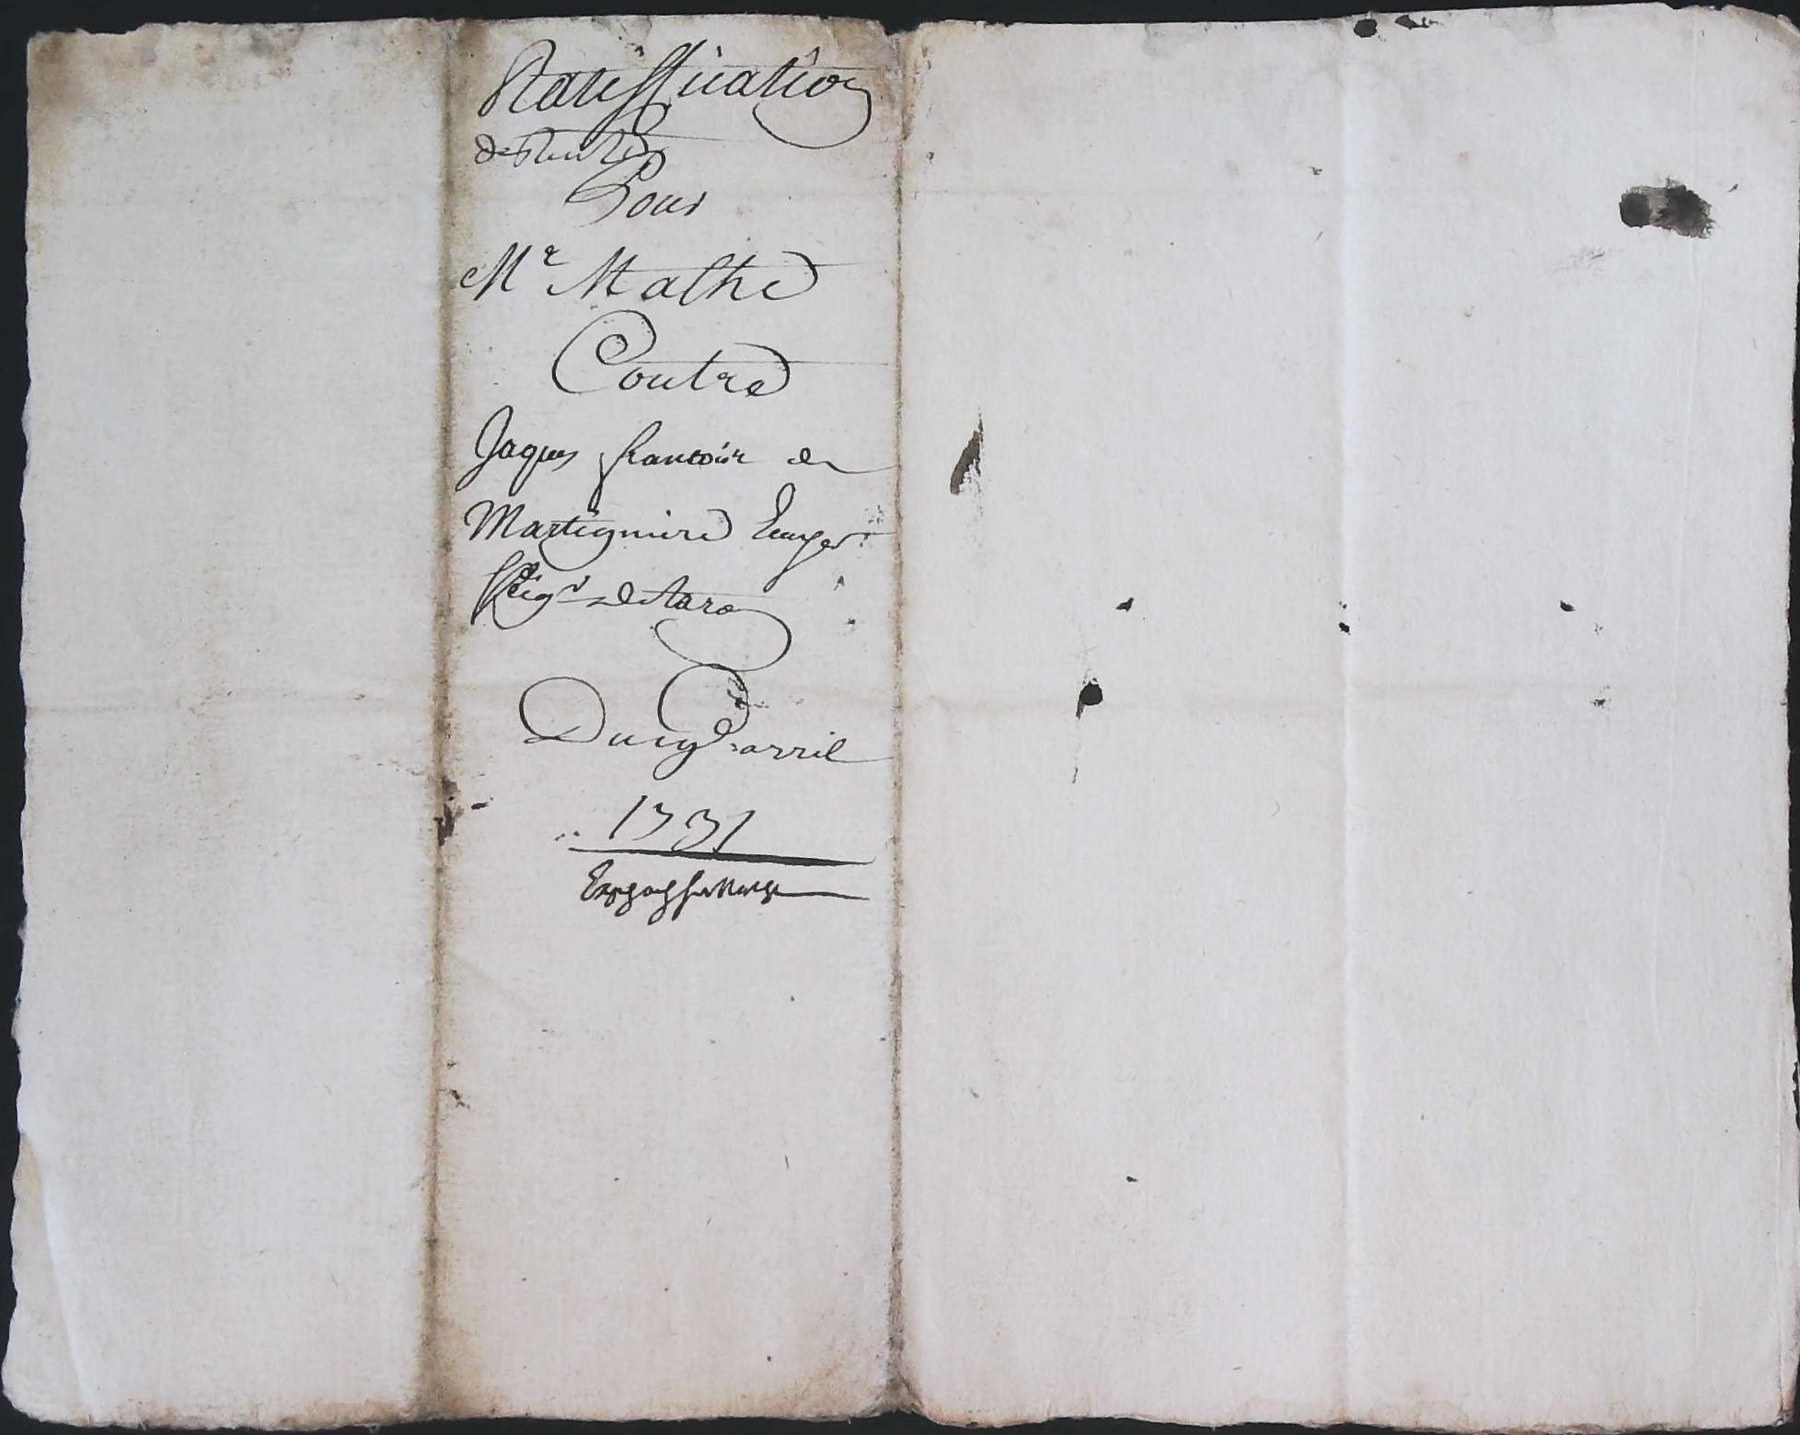 Ratiffication
de Rente
Pour
Mr Mathe
Contre
Jaques francois de
Martignire Ecuyer
Seigr de
Du avril
1731